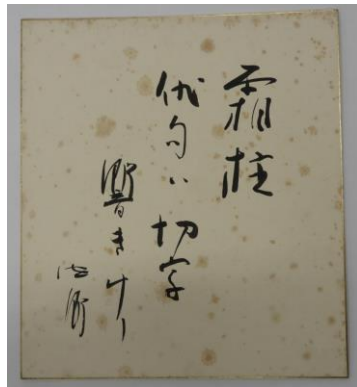 霜柱
俳句ハ切字
響きけり
波郷